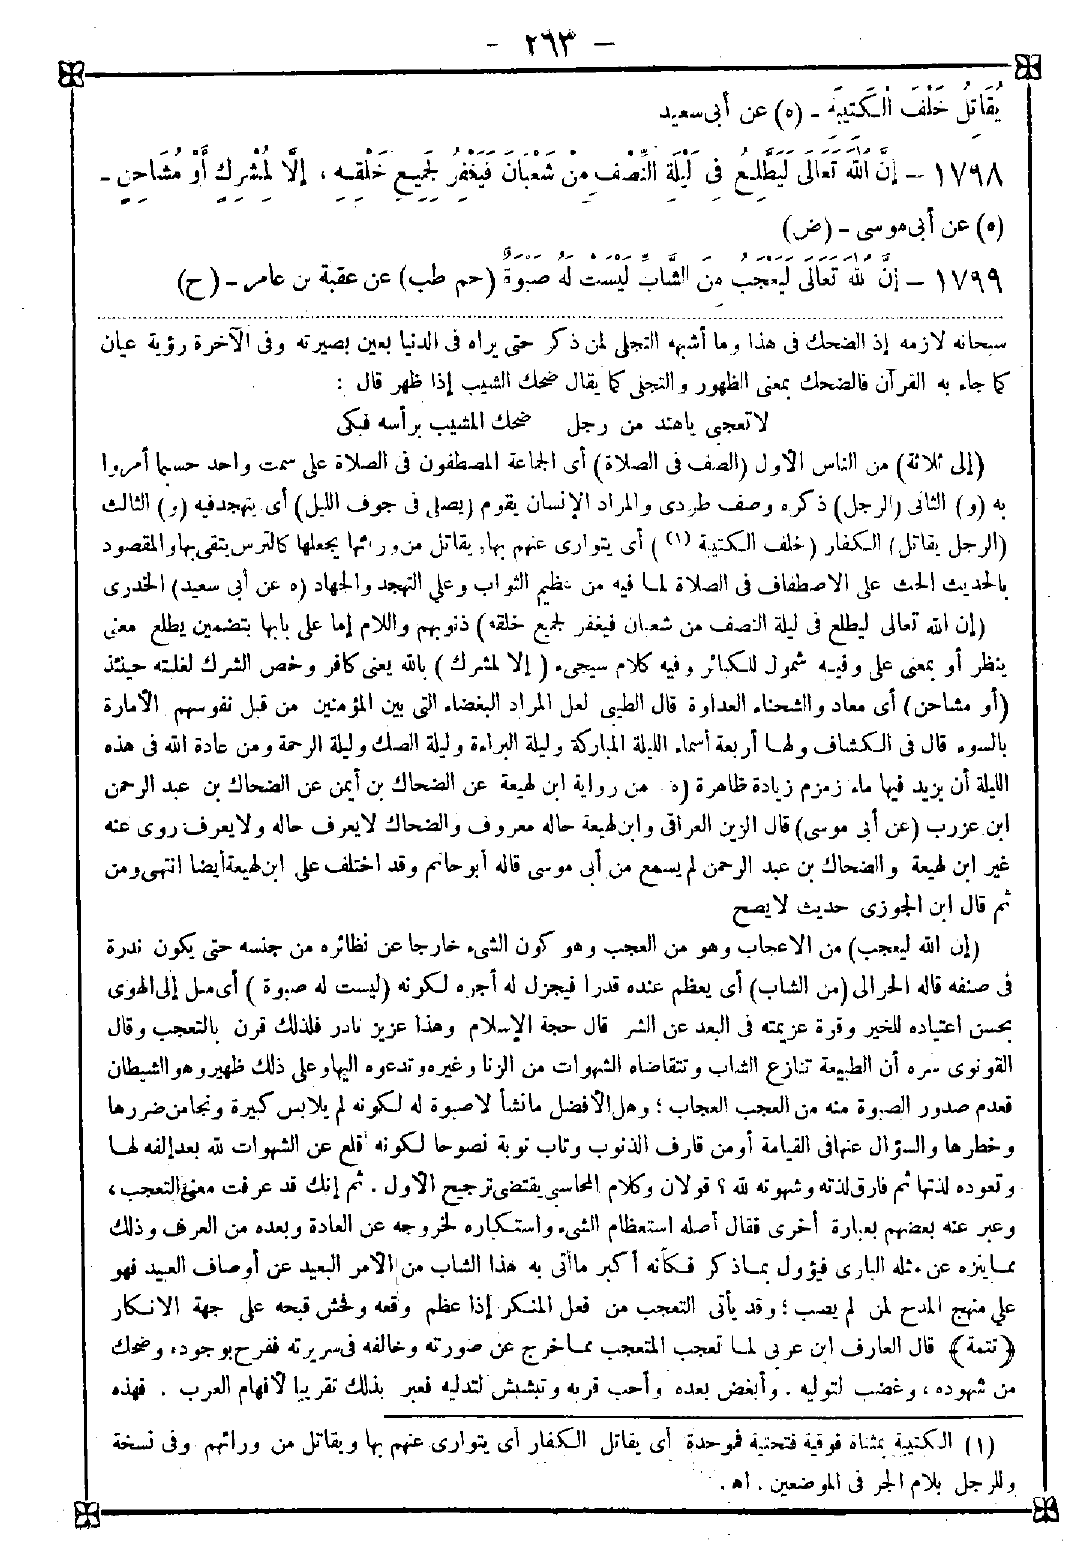 - ٢٦٣ -
يُقَاتِلُ خَلْفَ الْكَتِيبَةِ - (ه) عن أبى سعيد
١٧٩٨ - إِنَّ اللهَ تَعَالَى لَيَطَّلِعُ فِى لَيْلَةِ النِّصْفِ مِنْ شَعْبَانَ فَيَغْفِرُ لِجَمِيعِ خَلْقِهِ ، إِلَّا لِمُشْرِكٍ أَوْ مُشَاحِنٍ -
(ه) عن أبى موسى - (ض)
١٧٩٩ - إِنَّ اللهَ تَعَالَى لَيَعْجَبُ مِنَ الشَّابِّ لَيْسَتْ لَهُ صَبْوَةٌ (حم طب) عن عقبة بن عامر - (ح)
سبحانه لازمه إذ الضحك فى هذا وما أشبهه التجلى لمن ذكر حتى يراه فى الدنيا بعين بصيرته وفى الآخرة رؤية عيان
كما جاء به القرآن فالضحك بمعنى الظهور والتجلى كما يقال ضحك الشيب إذا ظهر قال :
لاتعجبى ياهند من رجل ضحك المشيب برأسه فبكى
(إلى ثلاثة) من الناس الأول (الصف فى الصلاة) أى الجماعة المصطفون فى الصلاة على سمت واحد حسبما أمروا
به (و) الثانى (الرجل) ذكره وصف طردى والمراد الإنسان يقوم (يصلى فى جوف الليل) أى يتهجد فيه (و) الثالث
(الرجل يقاتل) الكفار (خلف الكتيبة (١)) أى يتوارى عنهم بها، يقاتل من ورائها يجعلها كالترس يتقى بها والمقصود
بالحديث الحث على الاصطفاف فى الصلاة لما فيه من عظيم الثواب وعلى التهجد والجهاد (ه عن أبى سعيد) الخدرى
(إن الله تعالى ليطلع فى ليلة النصف من شعبان فيغفر لجميع خلقه) ذنوبهم واللام إما على بابها بتضمين يطلع معنى
ينظر أو بمعنى على وفيه شمول للكبائر وفيه كلام سيجىء (إلا لمشرك) بالله يعنى كافر وخص الشرك لغلبته حينئذ
(أو مشاحن) أى معاد والشحناء العداوة قال الطيبى لعل المراد البغضاء التى بين المؤمنين من قبل نفوسهم الأمارة
بالسوء قال فى الكشاف ولها أربعة أسماء الليلة المباركة وليلة البراءة وليلة الصك وليلة الرحمة ومن عادة الله فى هذه
الليلة أن يزيد فيها ماء زمزم زيادة ظاهرة (ه من رواية ابن لهيعة عن الضحاك بن أيمن عن الضحاك بن عبد الرحمن
ابن عزرب (عن أبى موسى) قال الزين العراقى وابن لهيعة حاله معروف والضحاك لا يعرف حاله ولا يعرف روى عنه
غير ابن لهيعة والضحاك بن عبد الرحمن لم يسمع من أبى موسى قاله أبو حاتم وقد اختلف على ابن لهيعة أيضا انتهى ومن
ثم قال ابن الجوزى حديث لا يصح
(إن الله ليعجب) من الاعجاب وهو من العجب وهو كون الشىء خارجا عن نظائره من جنسه حتى يكون ندرة
فى صنفه قاله الحرالى (من الشاب) أى يعظم عنده قدرا فيجزل له أجره لكونه (ليست له صبوة) أى ميل إلى الهوى
بحسن اعتياده للخير وقوة عزيمته فى البعد عن الشر قال حجة الإسلام وهذا عزيز نادر فلذلك قرن بالتعجب وقال
القونوى سره أن الطبيعة تنازع الشاب وتتقاضاه الشهوات من الزنا وغيره وتدعوه اليها وعلى ذلك ظهير وهو الشيطان
فعدم صدور الصبوة منه من العجب العجاب ؛ وهل الأفضل مانشأ لاصبوة له لكونه لم يلابس كبيرة ونجا من ضررها
وخطرها والسؤال عنها فى القيامة أو من قارف الذنوب وتاب توبة نصوحا لكونه أقلع عن الشهوات لله بعد إلفه لها
وتعوده لذتها ثم فارق لذته وشهوته لله ؟ قولان وكلام المحاسبى يقتضى ترجيح الأول . ثم إنك قد عرفت معنى التعجب ،
وعبر عنه بعضهم بعبارة أخرى فقال أصله استعظام الشىء واستكباره لخروجه عن العادة وبعده من العرف وذلك
مما ينزه عن مثله البارى فيؤول بما ذكر فكأنه أكبر ما أتى به هذا الشاب من الأمر البعيد عن أوصاف العبيد فهو
على منهج المدح لمن لم يصب ؛ وقد يأتى التعجب من فعل المنكر إذا عظم وقعه وفحش قبحه على جهة الانكار
﴿تتمة﴾ قال العارف ابن عربى لما تعجب المتعجب مما خرج عن صورته وخالفه فى سريرته ففرح بوجوده وضحك
من شهوده ، وغضب لتوليه . وأبغض بعده وأحب قربه وتبشبش لتدليه فعبر بذلك تقريبا لأفهام العرب . فهذه
(١) الكتيبة بمثناة فوقية فتحتية فموحدة أى يقاتل الكفار أى يتوارى عنهم بها ويقاتل من ورائهم وفى نسخة
وللرجل بلام الجر فى الموضعين . اه .